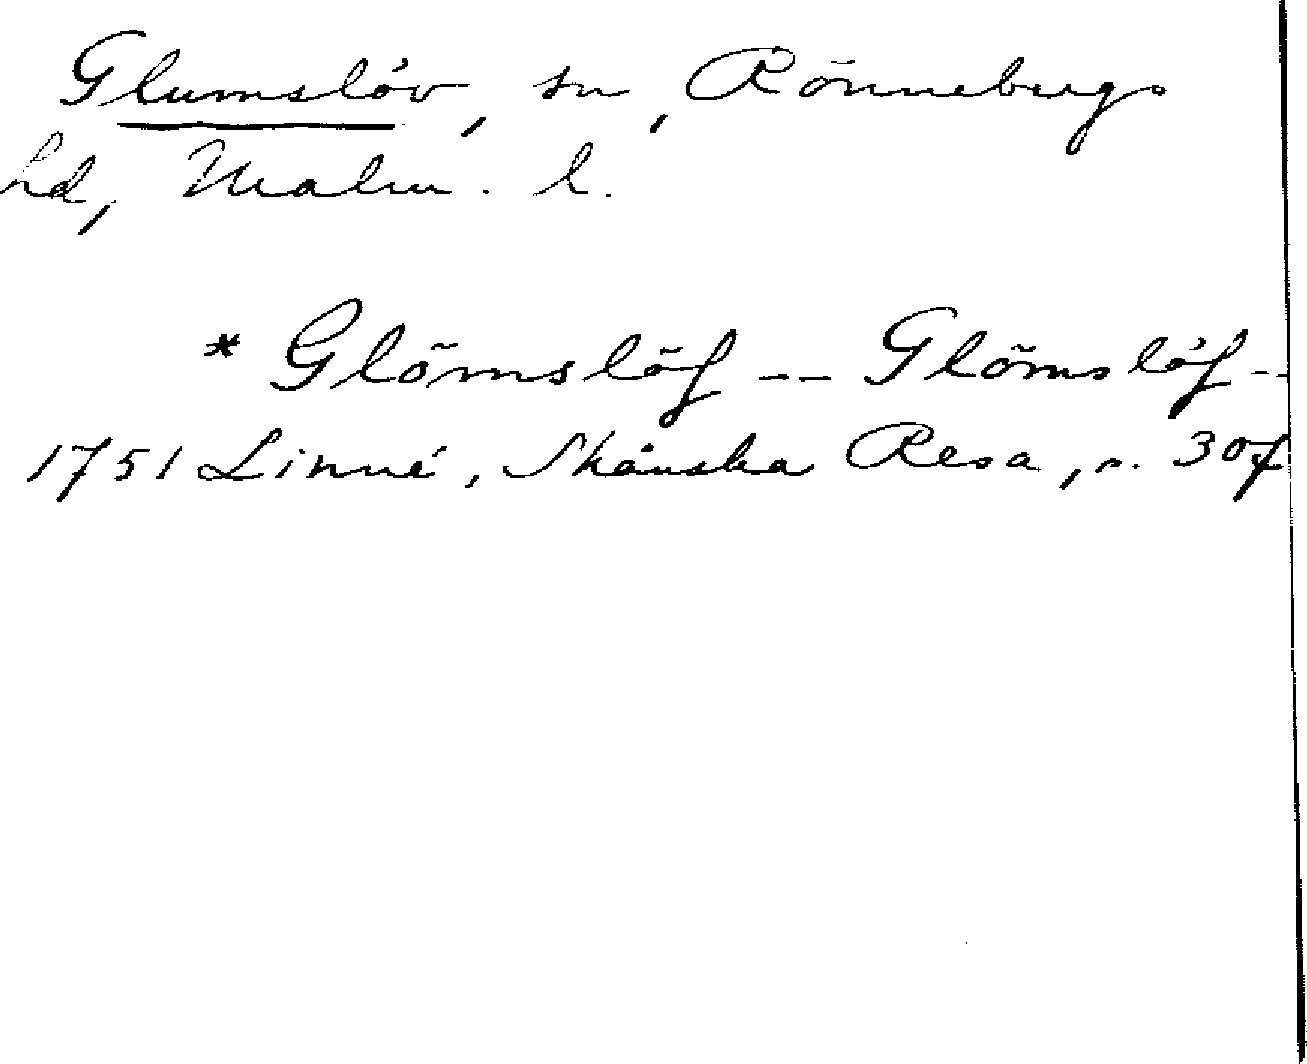 Glumslöv, sn, Rönnebergs
hd, Malm. l.
* Glömslöf -- Glömslöf --
1751 Linné, Skånska Resa, s. 307